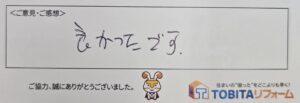 <ご意見・ご感想>
よかったです。
ご協力、誠にありがとうございました。
住まいの"困った"をどこよりも早く!
TOBITAリフォーム